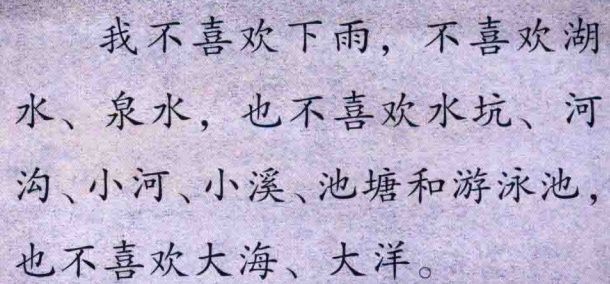 我不喜欢下雨，不喜欢湖
水、泉水，也不喜欢水坑、河
沟、小河、小溪、池塘和游泳池，
也不喜欢大海、大洋。